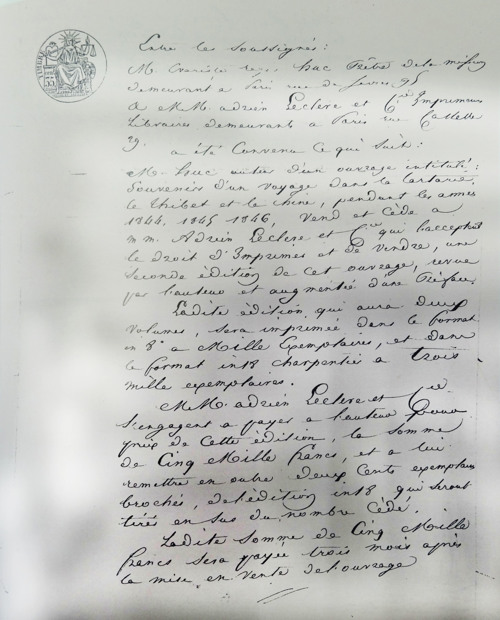 Entre les soussignés:
M. Huc Prêtre de la mission
demeurant à Paris rue de Sèvres 95
& MM. adrien Leclere et Cie Imprimeurs
Libraires, demeurants à Paris rue Cassette
29.
a été Convenu Ce qui Suit:
M. Huc auteur d'un ouvrage intitulé:
Souvenirs d'un Voyage dans la tartarie,
le thibet et la Chine, pendant les années
1844, 1845 1846, Vend et Cède à
m m. Adrien Leclere et Cie qui l'acceptent
le droit d'Imprimer et de Vendre, une
Seconde édition de Cet ouvrage, revue
par l'auteur et augmentée d'une Préface.
Ladite édition, qui aura deux
Volumes, Sera imprimée dans le format
in 8° à Mille Exemplaires, et dans
le format in 18 charpentier à trois
mille exemplaires.
M.M. adrien Leclere et Cie
S'engagent à payer à l'auteur pour
prix de Cette édition, la Somme
de Cinq Mille francs, et à lui
remettre en outre deux Cents exemplaires
brochés, de l'édition in 18 qui Seront
tirés en Sus du nombre Cédé.
Ladite Somme de Cinq Mille
francs Sera payée trois mois après
la mise en Vente de l'ouvrage